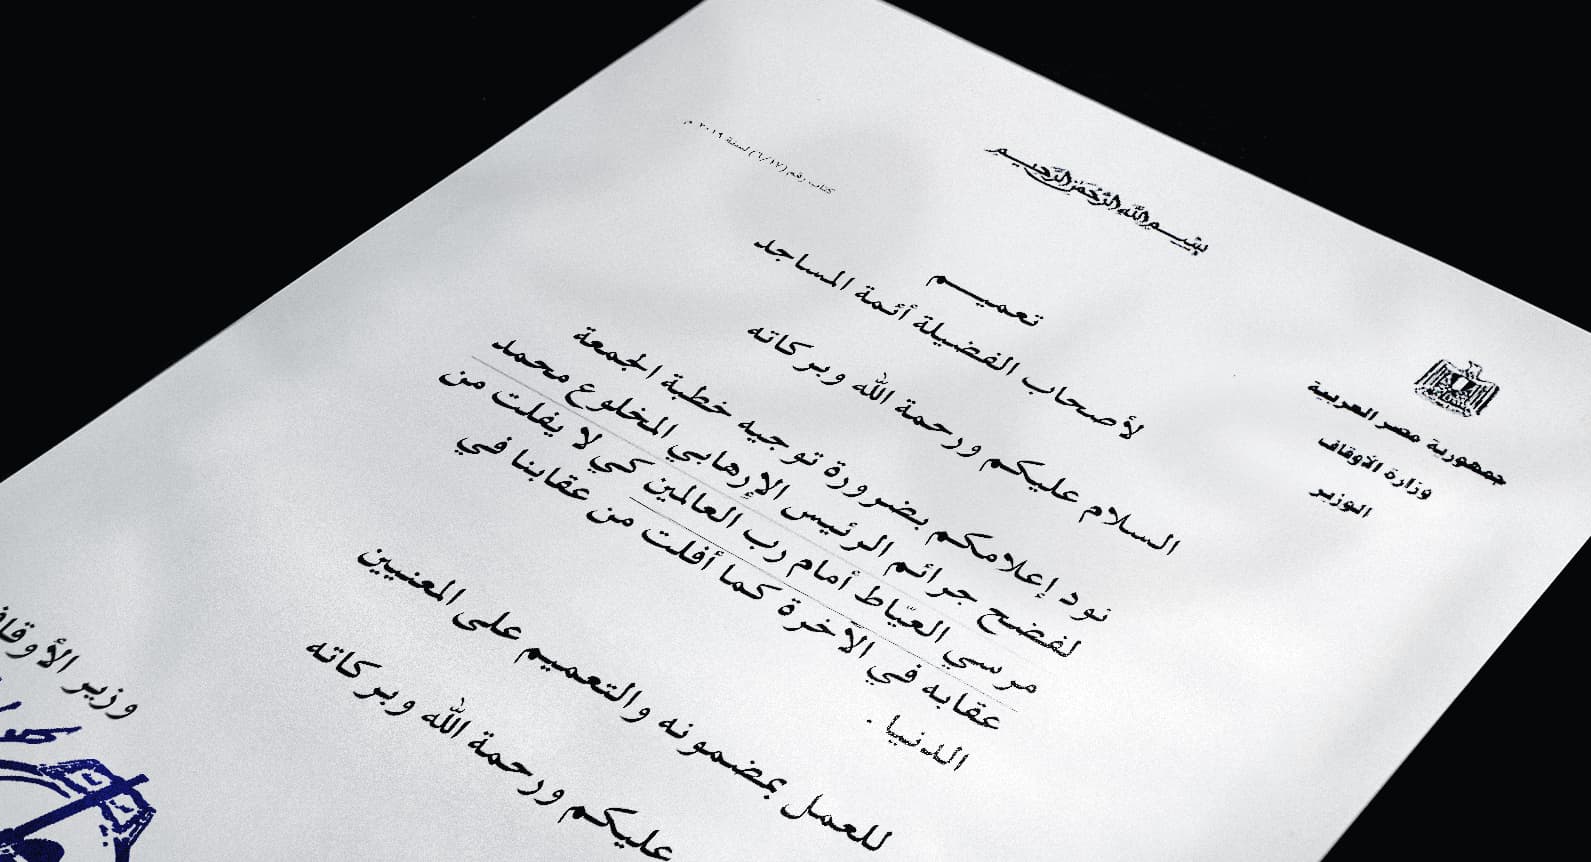 بسم الله الرحمن الرحيم
جمهورية مصر العربية
وزارة الأوقاف
الوزير
كتاب رقم (٦/١٧) لسنة ٢٠١٩ م
تعميم
لأصحاب الفضيلة أئمة المساجد
السلام عليكم ورحمة الله وبركاته
نود إعلامكم بضرورة توجيه خطبة الجمعة
لفضح جرائم الرئيس الإرهابي المخلوع محمد
مرسي العيّاط أمام رب العالمين كي لا يفلت من
عقابه في الآخرة كما أفلت من عقابنا في
الدنيا .
للعمل بمضمونه والتعميم على المعنيين
عليكم ورحمة الله وبركاته
وزير الأوقاف